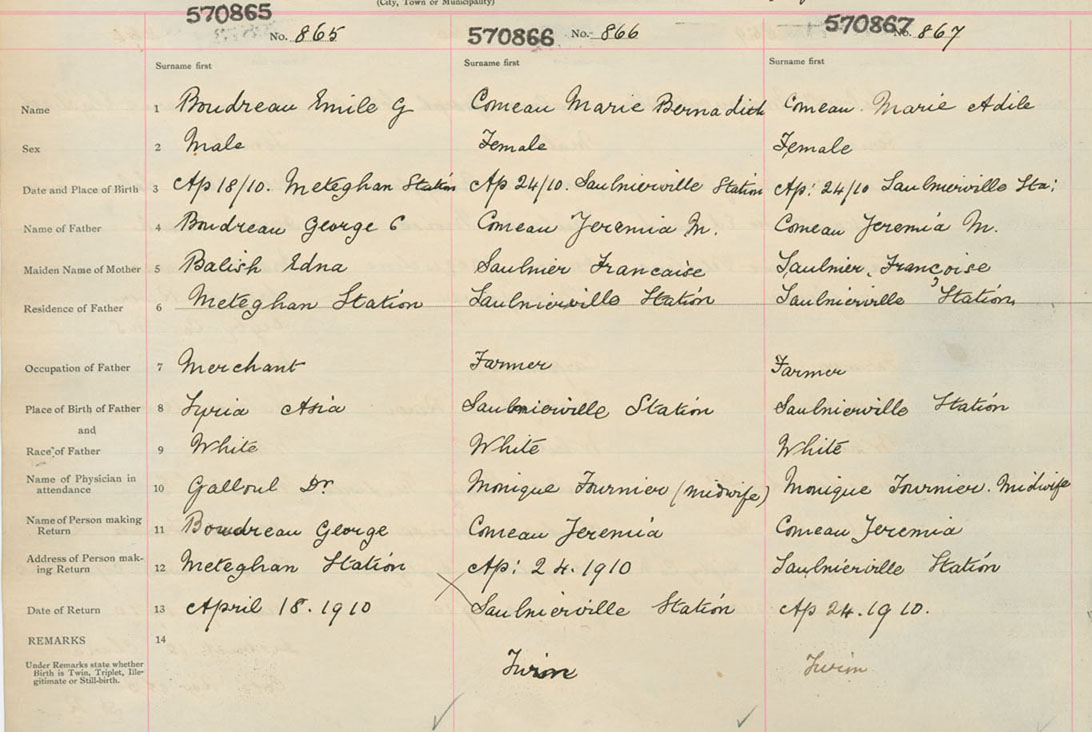 (City, Town or Municipality)
570865 No. 865 570866 No. 866 570867 No. 867
Surname first Surname first Surname first
Name 1 Boudreau Emile G Comeau Marie Bernadick Comeau Marie Adile
Sex 2 Male Female Female
Date and Place of Birth 3 Ap 18/10. Meteghan Station Ap 24/10. Saulnierville Station Ap: 24/10 Saulnierville Sta:
Name of Father 4 Boudreau George C Comeau Jeremia M. Comeau Jeremia M.
Maiden Name of Mother 5 Balish Edna Saulnier Francaise Saulnier, Françoise
Residence of Father 6 Meteghan Station Saulnierville Station Saulnierville Station
Occupation of Father 7 Merchant Farmer Farmer
Place of Birth of Father 8 Syria Asia Saulnierville Station Saulnierville Station
and
Race of Father 9 White White White
Name of Physician in
attendance 10 Dr Monique Fournier (midwife) Monique Fournier. Midwife
Name of Person making
Return 11 Boudreau George Comeau Jeremia Comeau Jeremia
Address of Person mak-
ing Return 12 Meteghan Station Ap: 24. 1910 Saulnierville Station
Date of Return 13 April 18. 1910 Saulnierville Station Ap 24. 1910.
REMARKS 14
Under Remarks state whether
Birth is Twin, Triplet, Ille-
gitimate or Still-birth.
Twin Twin